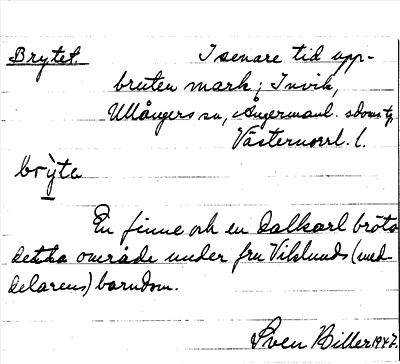 Brytet. I senare tid upp-
bruten mark; Invik,
Ullångers sn, Ångermanl. s domst.
Västernorrl. l.
brỳta
En finne och en dalkarl bröto
detta område under fru Viklunds (med-
delarens) barndom.
Sven Biller 1947.